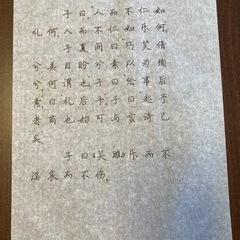 子曰：人而不仁，如
礼何，人而不仁如乐何，
子夏问曰巧笑倩
兮，美目盼兮素以为绚
兮，何谓也，子曰绘事后
素，曰礼后乎子曰起予
者商也始可与言诗已
矣
子曰：关雎，乐而不
淫哀而不伤。